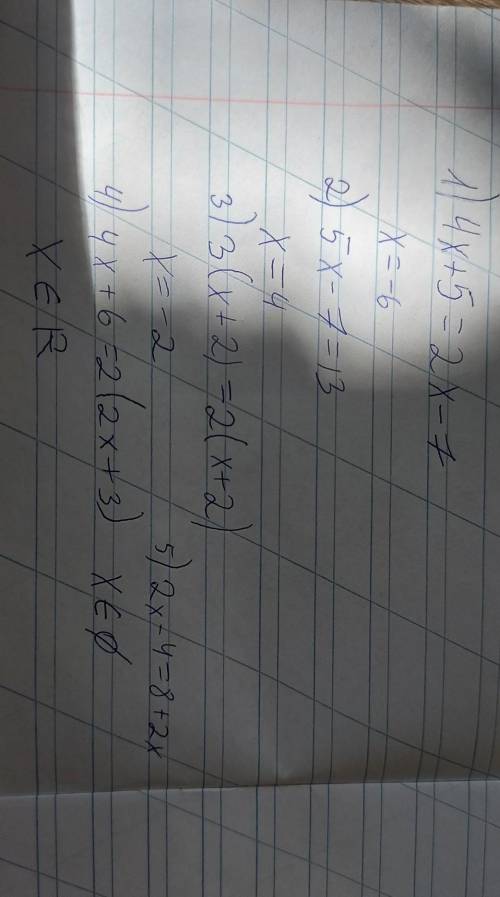 1) 4x+5=2x-7
x=-6
2) 5x-7=13
x=4
3) 3(x+2)=2(x+2)
x=-2
5) 2x-4=8+2x
4) 4x+6=2(2x+3)
x∈∅
x∈R